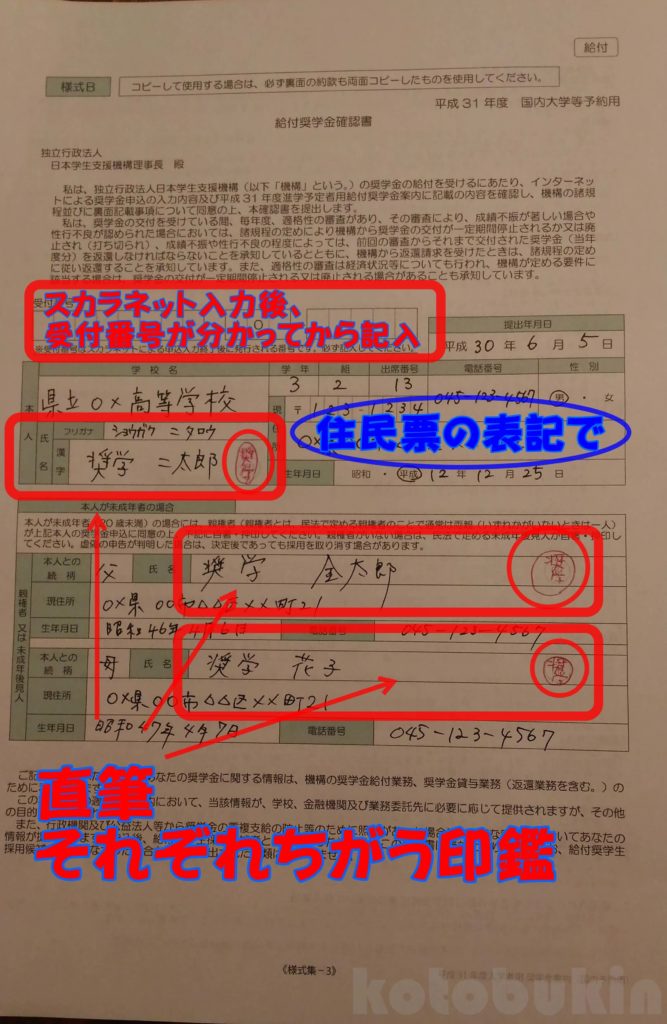 給付
様式B コピーして使用する場合は、必ず裏面の約款も両面コピーしたものを使用してください。
平成 31 年度 国内大学等予約用
給付奨学金確認書
独立行政法人
日本学生支援機構理事長 殿
私は、独立行政法人日本学生支援機構(以下「機構」という。)の奨学金の給付を受けるにあたり、インターネッ
トによる奨学金申込の入力内容及び平成 31 年度進学予定者用給付奨学金案内に記載の内容を確認し、機構の諸規
程並びに裏面記載事項について同意の上、本確認書を提出します。
私は、奨学金の交付を受けている間、毎年度、適格性の審査があり、その審査により、成績不振が著しい場合や
性行不良が認められた場合においては、諸規程の定めにより機構から奨学金の交付が一定期間停止されるか又は廃
止され(打ち切られ)、成績不振や性行不良の程度によっては、前回の審査からそれまで交付された奨学金(当年
度分)を返還しなければならないことを承知しているとともに、機構から返還請求を受けたときは、諸規程の定め
に従い返還することを承知しています。また、適格性の審査は経済状況等についても行われ、機構が定める要件に
該当する場合は、奨学金の交付が一定期間停止又は廃止される場合があることも承知しています。
スカラネット入力後、
受付番号が分かってから記入
提出年月日
平成 30 年 6 月 5 日
学校名 学年 組 出席番号 電話番号 性別
県立〇×高等学校 3 2 13 045-123-4567 男・女
〒123-1234
住民票の表記で
本人 氏名 フリガナ ショウガク ニタロウ
漢字 奨学 二太郎 奨学
生年月日 昭和・平成 12 年 12 月 25 日
本人が未成年者の場合
本人が未成年者(20 歳未満)の場合には、親権者(親権者とは、民法で定める親権者のことで通常は両親(いずれかがいないときは一人)
が上記本人の奨学金申込に同意の上、下記に自署・押印してください。親権者がいない場合は、民法で定める未成年後見人が自署・押印し
てください。虚偽の申告が判明した場合は、決定後であっても採用を取り消す場合があります。
親権者又は未成年後見人
本人との続柄 父 氏名 奨学 金太郎 奨学
現住所 〇×県〇〇市△△区××町21
生年月日 昭和46年4月6日 電話番号 045-123-4567
本人との続柄 母 氏名 奨学 花子 奨学
現住所 〇×県〇〇市△△区××町21
生年月日 昭和47年4月7日 電話番号 045-123-4567
直筆
それぞれちがう印鑑
あなたの奨学金に関する情報は、機構の奨学金給付業務、奨学金貸与業務(返還業務を含む。)の
において、当該情報が、学校、金融機関及び業務委託先に必要に応じて提供されますが、その他
《様式集-3》
kotobukin